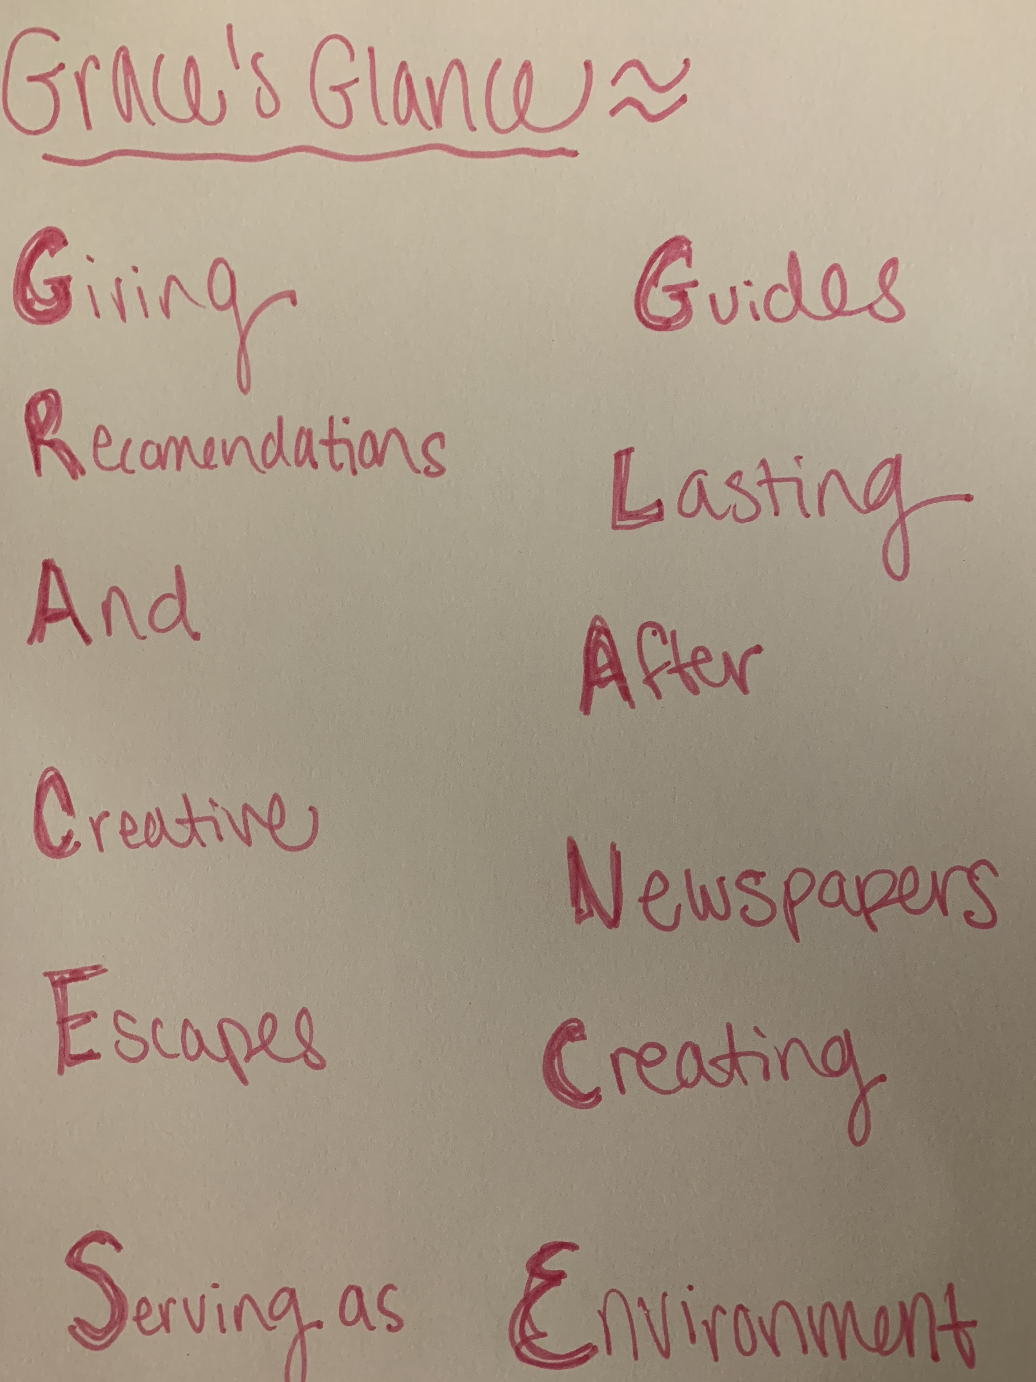 Grace's Glance ≈
Giving
Recomendations
And
Creative
Escapes
Serving as
Guides
Lasting
After
Newspapers
Creating
Environment